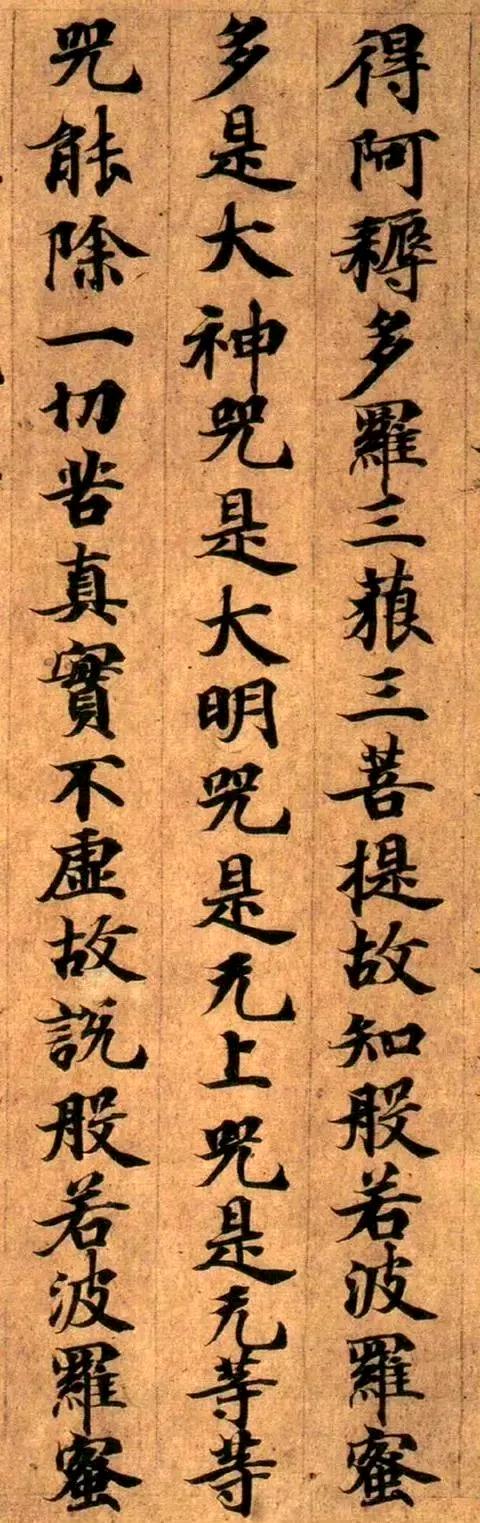 得阿耨多羅三藐三菩提故知般若波羅蜜
多是大神咒是大明咒是无上咒是无等等
咒能除一切苦真實不虛故説般若波羅蜜